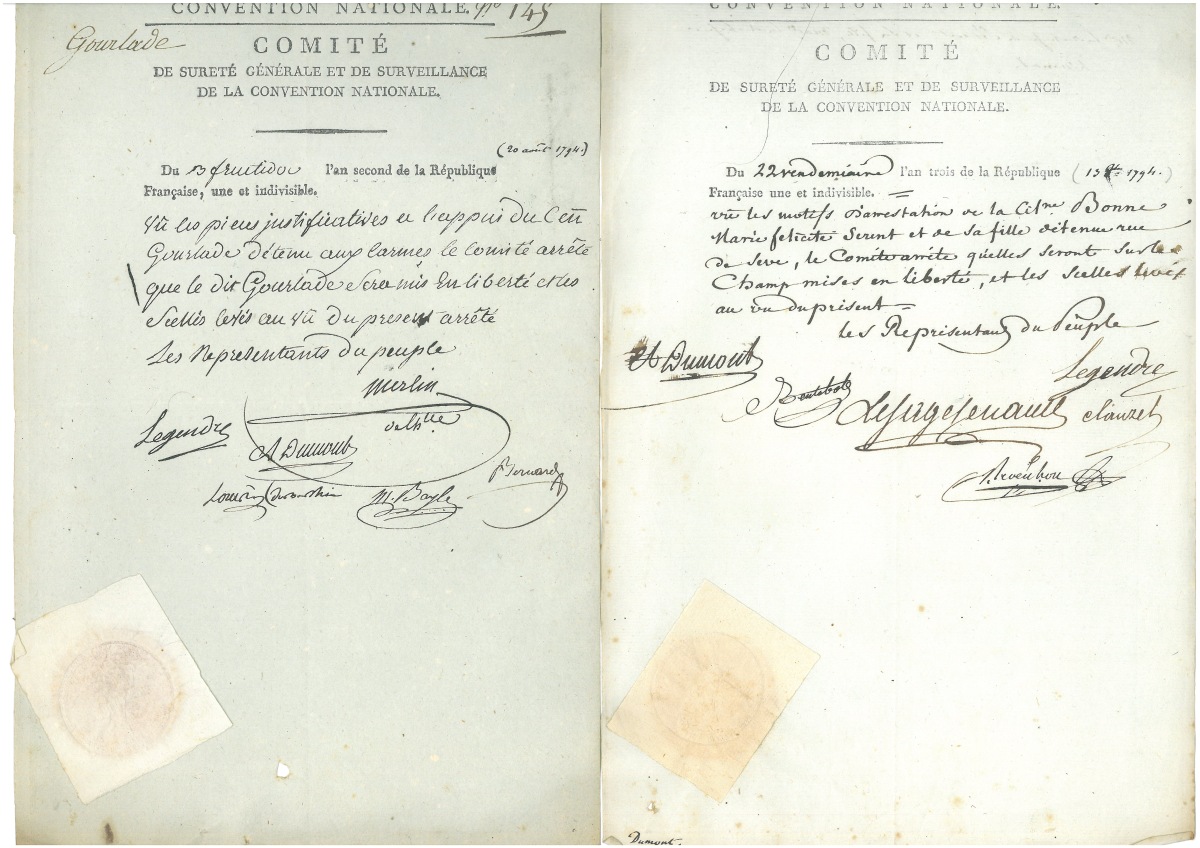 CONVENTION NATIONALE. N.º 145
Gourlade
COMITÉ
DE SURETÉ GÉNÉRALE ET DE SURVEILLANCE
DE LA CONVENTION NATIONALE.
(20 août 1794.)
Du 3 fructidor l'an second de la République
Française, une et indivisible.
Vû les pieces justificatives a l'appui du Cen
Gourlade détenu aux Carmes le comité arrête
que le dit Gourlade sera mis En liberté et les
Scellés levés au vû du present arrêté
Les Représentants du peuple
Merlin
Legendre
A Dumont
Louis
M. Bayle
Bernard
CONVENTION NATIONALE.
COMITÉ
DE SURETÉ GÉNÉRALE ET DE SURVEILLANCE
DE LA CONVENTION NATIONALE.
Du 22 vendemiaire l'an trois de la République (13 8bre 1794.)
Française une et indivisible. =
vu les motifs D'arrestation de la Citne Bonne
Marie felicité Serent et de sa fille détenue rue
de Seve, le Comité arrête quelles seront sur le
Champ mises en liberté, et les Scellés levés
au vu du présent =
les Représentans du Peuple
A Dumont
Legendre
Reubell
LeSage Senault
Clauzel
Dumont.